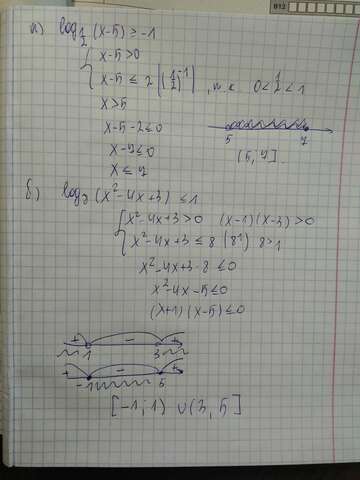 B12
а) log_{1/2} (x-5) ≥ -1
{ x-5 > 0
x-5 ≤ 2 | (1/2)^{-1} | , т.к. 0 < 1/2 < 1
x > 5
x-5-2 ≤ 0
x-7 ≤ 0
x ≤ 7
5 7
(5; 7].
б) log_8 (x²-4x+3) ≤ 1
{ x²-4x+3 > 0 (x-1)(x-3) > 0
x²-4x+3 ≤ 8 (8¹) 8 > 1
x²-4x+3-8 ≤ 0
x²-4x-5 ≤ 0
(x+1)(x-5) ≤ 0
+ 1 - 3 +
+ -1 - 5 +
[-1; 1) ∪ (3, 5]